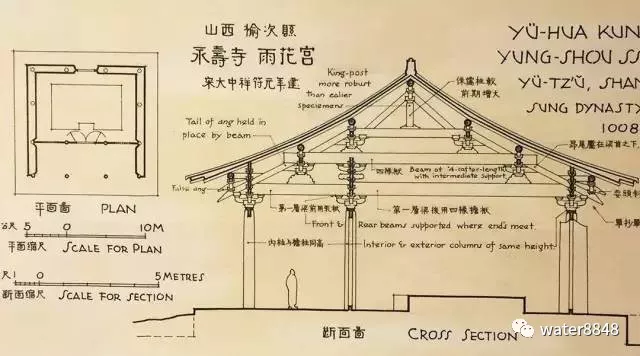 山西 榆次縣
永壽寺 雨花宮
宋大中祥符元年建
YÜ-HUA KUN
YUNG-SHOU SS
YÜ-TZ'Ŭ, SHAN
SUNG DYNASTY
1008
King-post
more robust
than ealier
specimens
侏儒柱較
前期增大
Tail of ang held in
place by beam
昂尾壓在梁首之下
四椽栿
Beam of "4-rafter-length"
with intermediate support
False ang
第一層梁前用乳栿
第一層梁後用四椽檐栿
Front & Rear beams supported where ends meet.
內柱与檐柱同高
Interior & exterior columns of same height.
平面圖 PLAN
公尺 5 0 10M
平面縮尺 SCALE FOR PLAN
尺 1 0 5 METRES
断面縮尺 SCALE FOR SECTION
断面圖 CROSS SECTION
water8848